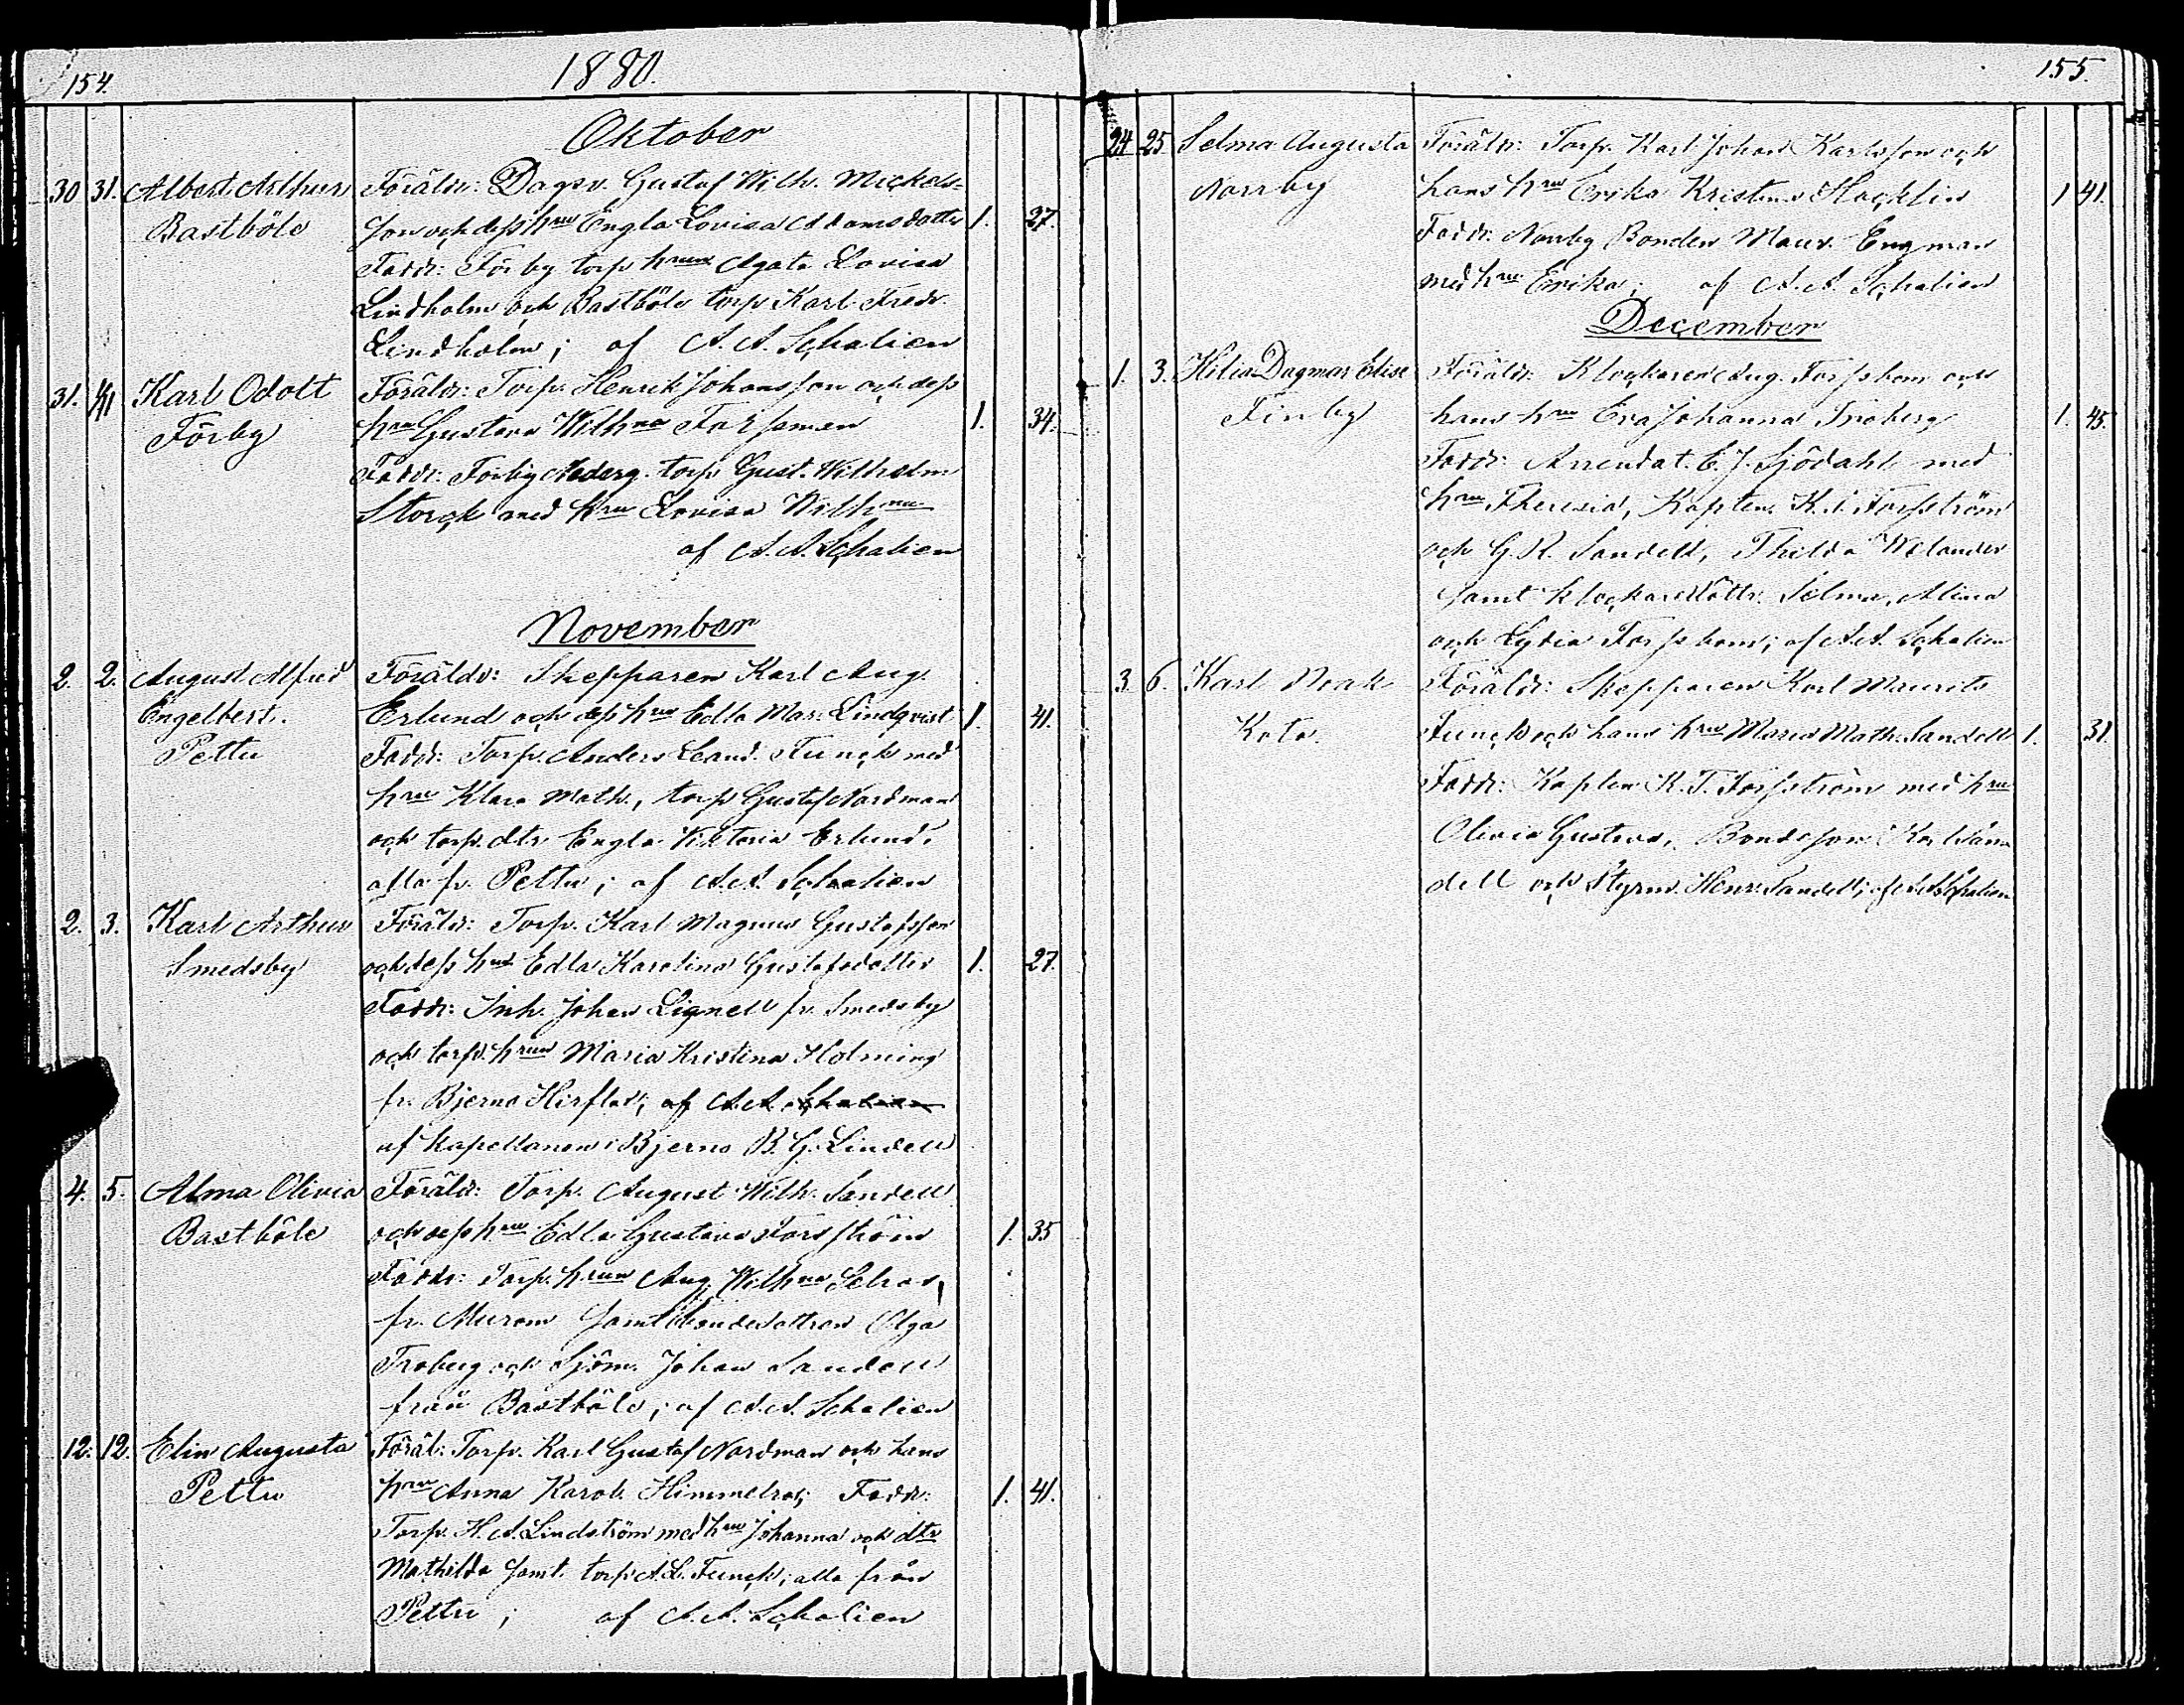 154.
1880.
Oktober
30 31. Albert Arthur Föräldr: Dagsv. Gustaf Wilh. Mickels-
Bastböle son och dess hru Engla Lovisa Adamsdotter 1. 37.
Faddr: Förby torp hrun Agata Lovisa
Lindholm och Bastböle torp Karl Fredr.
Lindholm; af A. A. Schalien
31. 1/11 Karl Odolt Föräldr: Torp. Henrik Johansson och dess
Förby hru Gustava Wilhna Forsman 1. 34.
Faddr: Förby torp Gust. Wilhelm
Storck med hru Lovisa Wilhna
af A. A. Schalien
November
2. 2. August Alfred Föräldr: Skepparen Karl Aug.
Engelbert. Erlund och dess hru Edla Mar. Lindqvist 1. 41.
Pettu Faddr: Torp. Anders Leand. Funck med
hru Klara Math., torp Gustaf Nordman
och torp. dtr Engla Viktoria Erlund,
alla fr. Pettu; af A. A. Schalien
2. 3. Karl Arthur Föräldr: Torp. Karl Magnus Gustafsson
Smedsby och dess hru Edla Karolina Gustafsdotter 1. 27.
Faddr: Inh. Johan Lignell fr. Smedsby
och torp. hrun Maria Kristina Holming
fr. Bjerno Hirflax; af A. A. Schalien
af Kapellanen i Bjerno B. G. Lindell
4. 5. Alma Olivia Föräldr: Torp. August Wilh. Sandell
Bastböle och dess hru Edla Gustava Forsström 1. 35
Faddr: Torp. hrun Aug. Wilhna
fr. Murom samt bondedottren Olga
Froberg och Sjöm. Johan Sandell
från Bastböle; af A. A. Schalien
12. 12. Elin Augusta Föräl: Torp. Karl Gustaf Nordman och hans
Pettu hru Anna Karol. Himmelros; Faddr: 1. 41.
Torp. H. A. Lindström med hru Johanna och dtr
Mathilda samt torp A. L. Funck; alla från
Pettu; af A. A. Schalien
155.
24 25 Selma Augusta Föräldr: Torp. Karl Johan Karlsson och
Norrby hans hru Erika Kristina Hacklin 1 41.
Faddr: Norrby Bonden Maur. Engman
med hru Erika; af A. A. Schalien
December
1. 3. Hilia Dagmar Elise Föräldr: Klockaren Aug. Forsbom och
Finby hans hru Eva Johanna Froberg 1. 45.
Faddr: Arrendat. E. J. Sjödahl med
hru Theresia, Kapten K. T. Forsström
och G. R. Sandell, Thilda Welander
samt klockaredöttr. Selma, Alina
och Lydia Forsbom; af A. A. Schalien
3. 6. Karl Noak Föräldr: Skepparen Karl Maurits
Kota. Funck och hans hru Maria Math. Sandell 1. 31.
Faddr: Kapten K. T. Forsström med hru
Olivia Gustava, Bondeson Karl San
dell och Styrm. Henr. Sandell; af A. A. Schalien